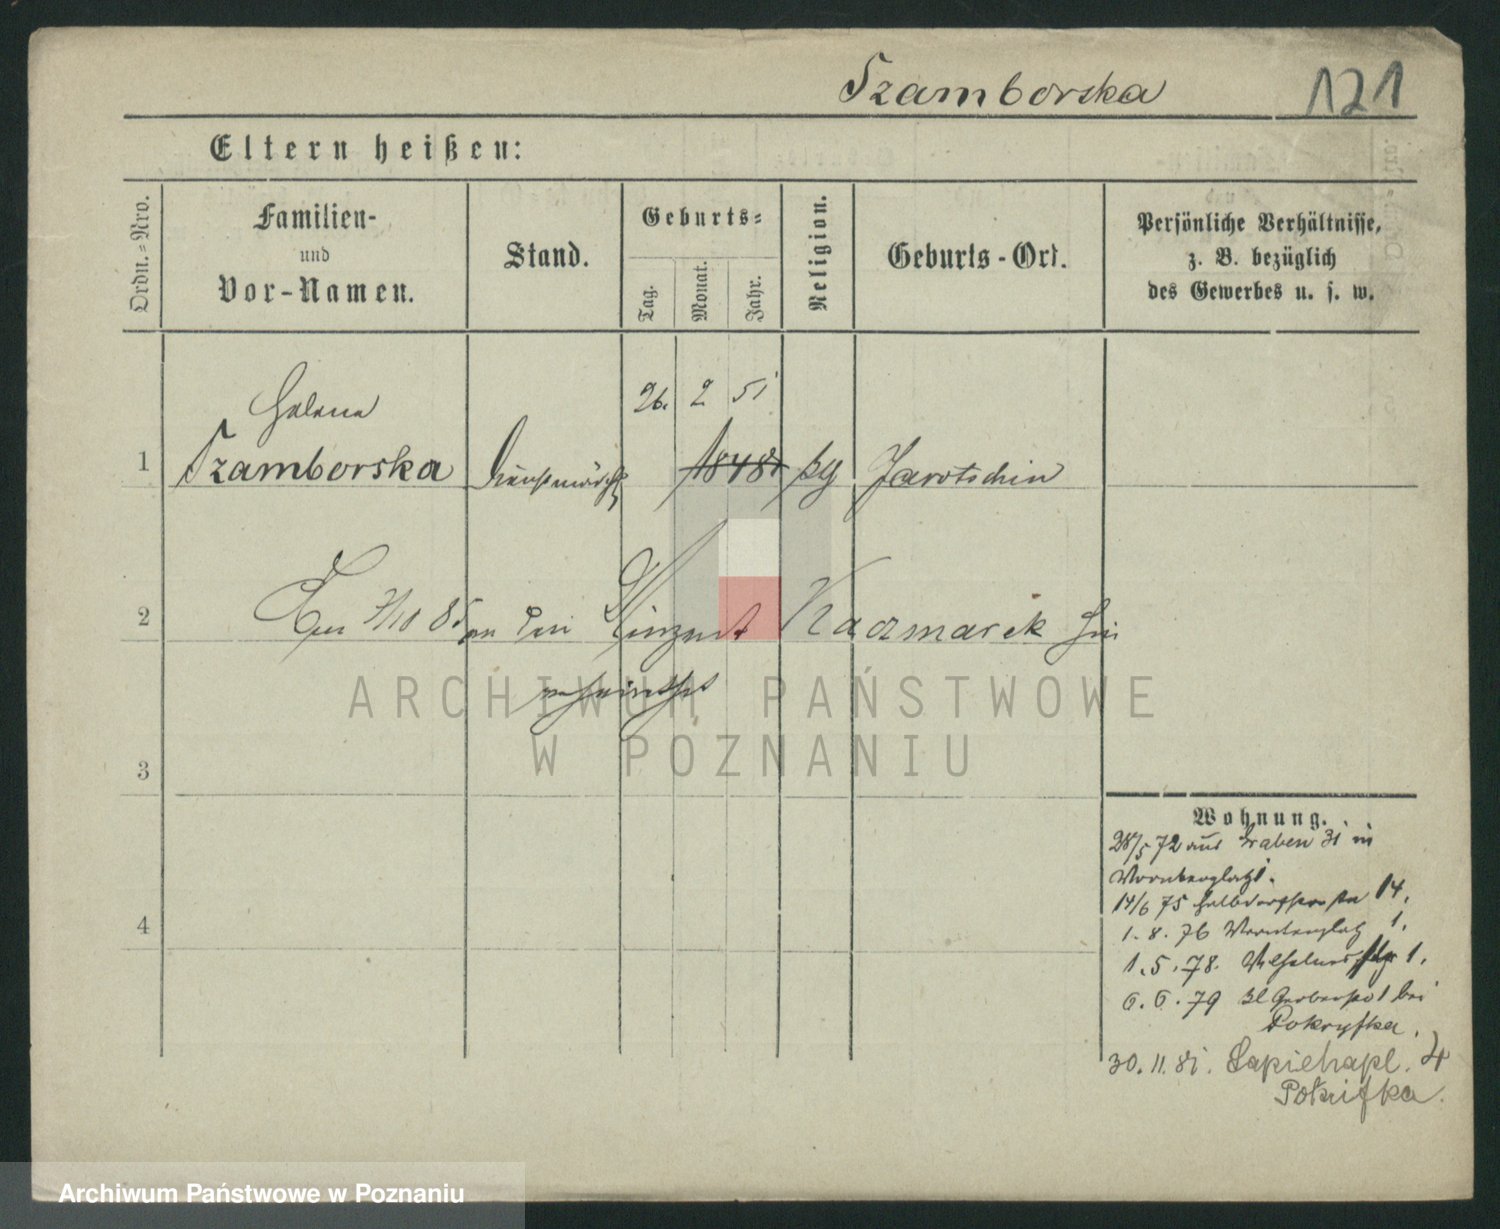 Szamborska 121
Eltern heißen:
Ordn.=Nro.
Familien-
und
Vor-Namen.
Stand.
Geburts=
Tag.
Monat.
Jahr.
Religion.
Geburts-Ort.
Persönliche Verhältnisse,
z. B. bezüglich
des Gewerbes u. s. w.
Helena 26. 2 51
1 Szamborska Dienstmädch 1848 Jarotschin
2 85 an den Kaczmarek
verheirathet
ARCHIWUM PAŃSTWOWE
W POZNANIU
3
4
Wohnung.
28/5 72 aus Graben 31 in
14/6 75 14.
1. 8. 76 1.
1. 5. 78. 1.
6. 6. 79 bei
Pokryfka.
30. 11. 81. Sapiehapl. 4
Pokrifka.
Archiwum Państwowe w Poznaniu